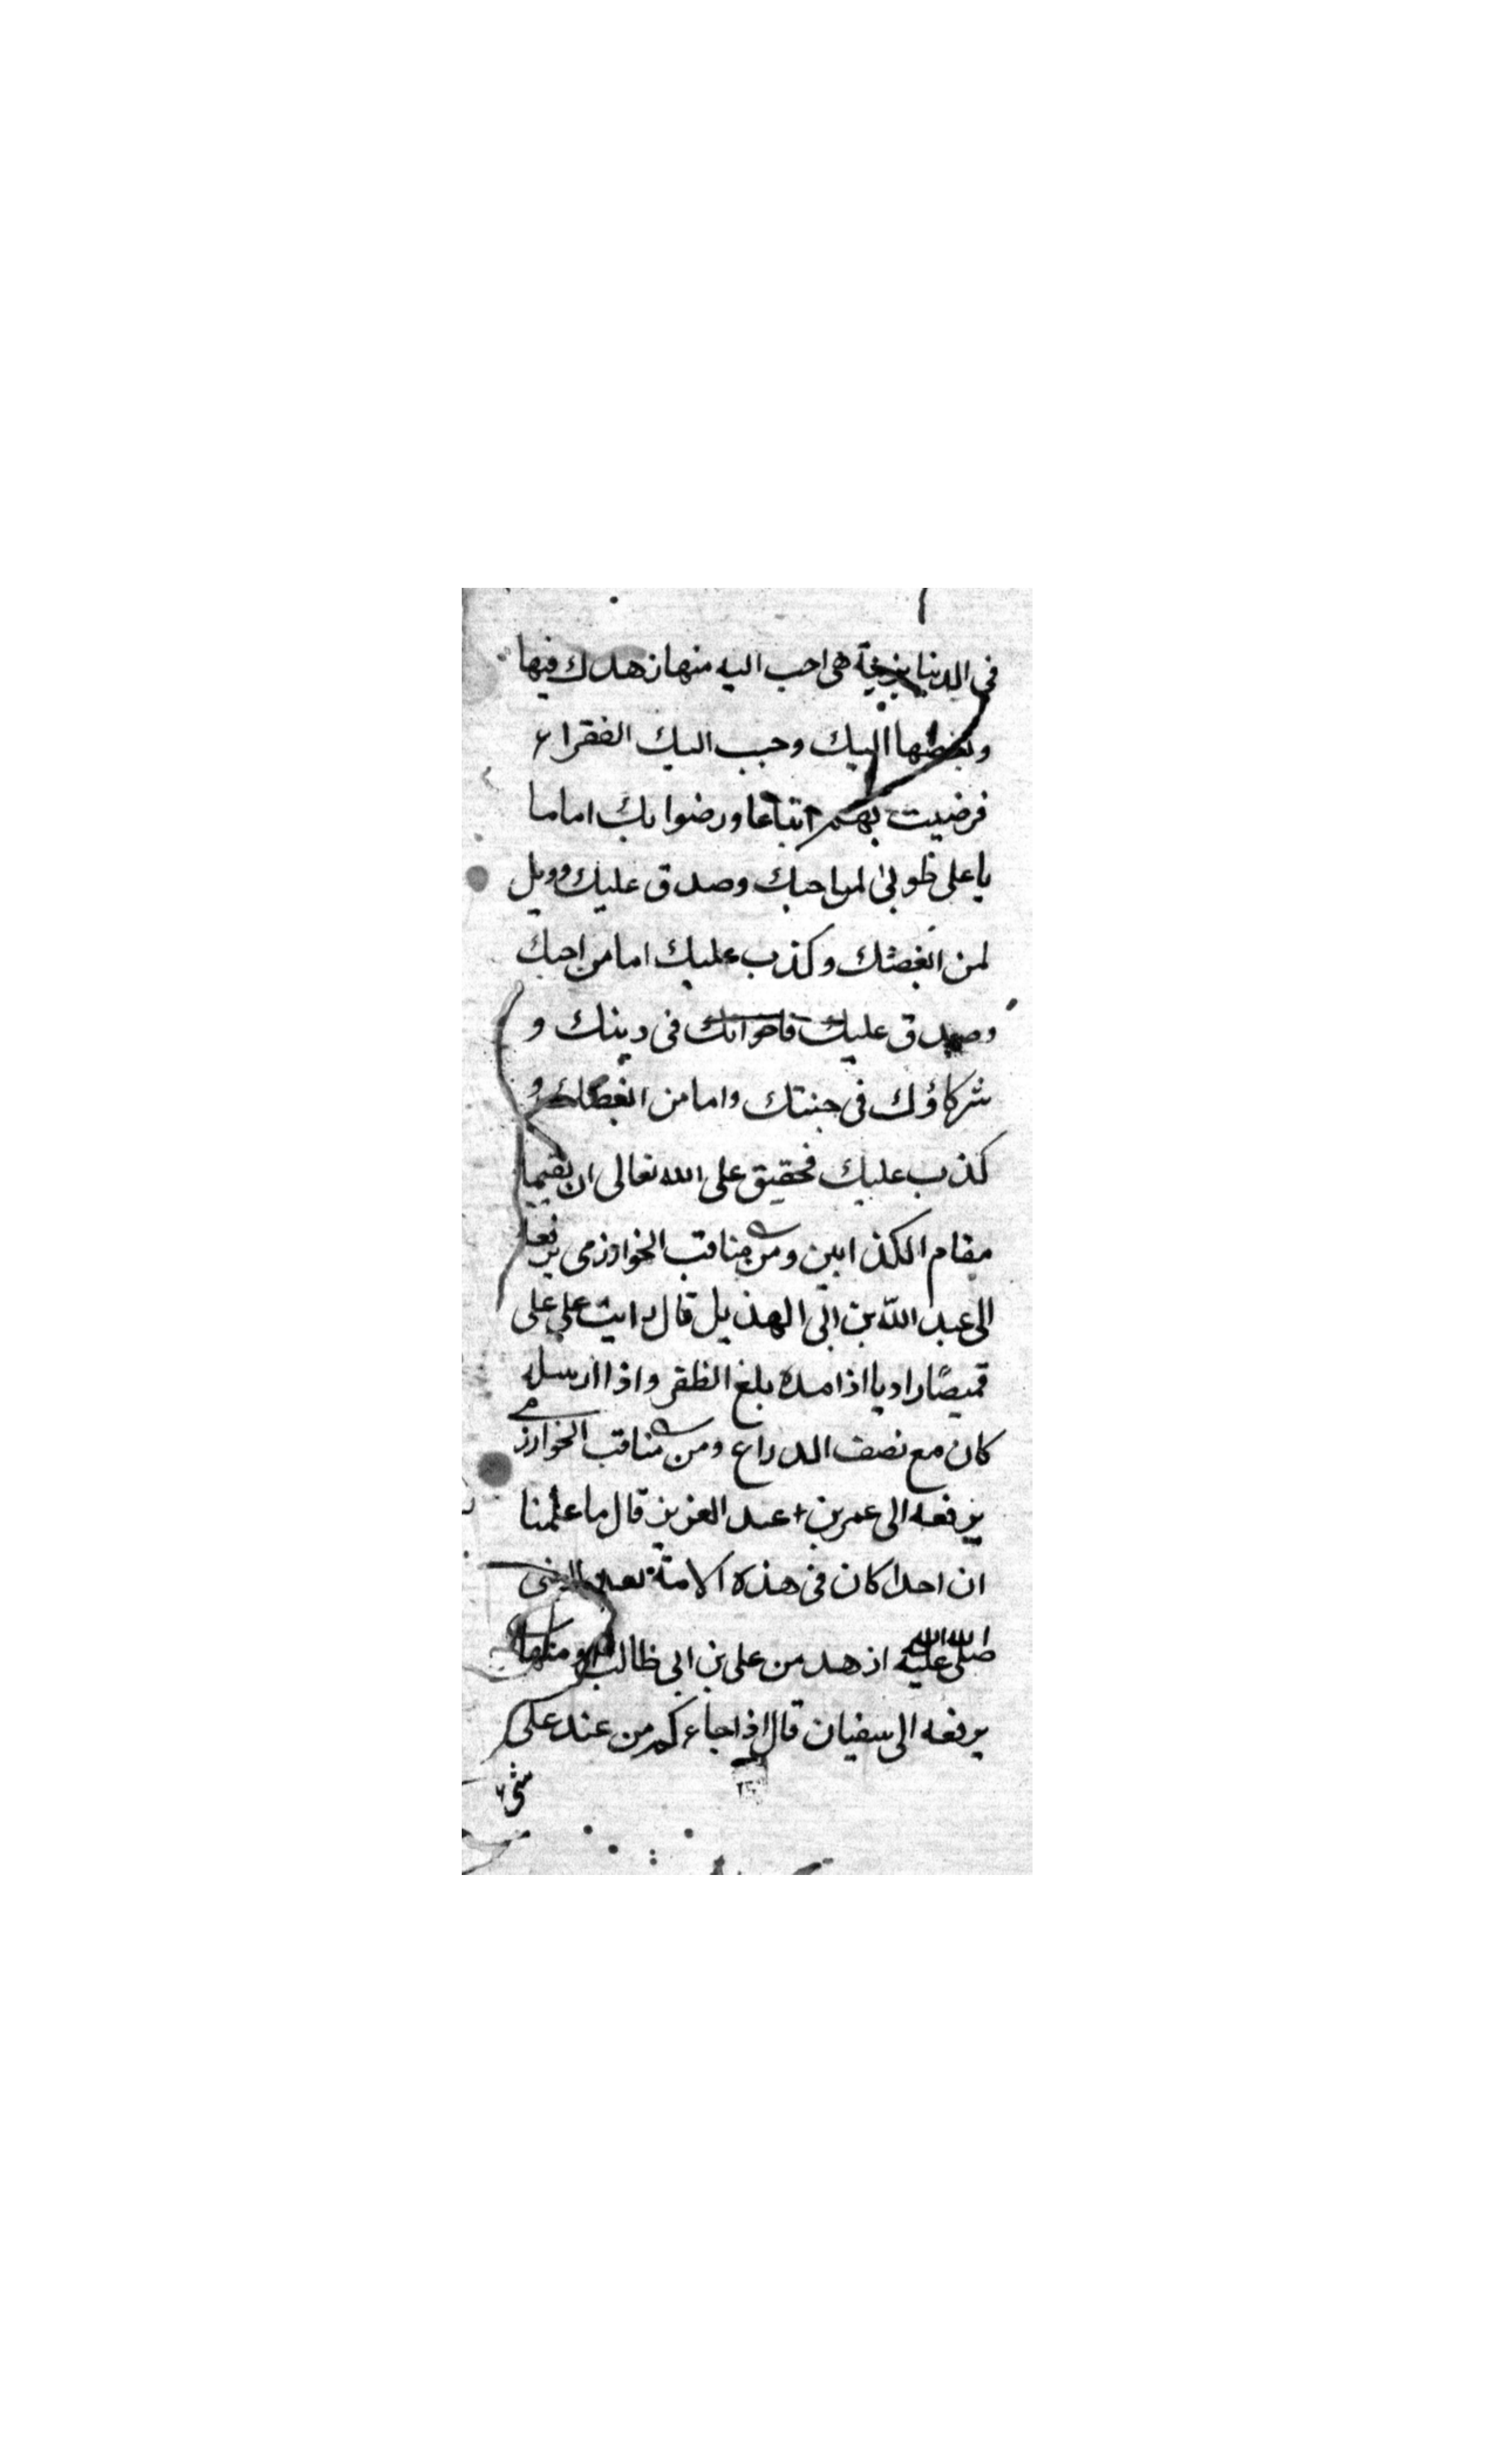 في الدنيا بزينة هي احب اليه منها زهدك فيها
وبغضها اليك وحبب اليك الفقراء
فرضيت بهم اتباعا ورضوا بك اماما
يا علي طوبى لمن احبك وصدق عليك وويل
لمن ابغضك وكذب عليك اما من احبك
وصدق عليك فاخوانك في دينك و
شركاؤك في جنتك واما من ابغضك و
كذب عليك فحقيق على الله تعالى ان يقيمها
مقام الكذابين ومن مناقب الخوارزمي يرفعه
الى عبد الله بن ابي الهذيل قال رايت علي علي
قميصا راويا اذا مده بلغ الظفر واذا ارسله
كان مع نصف الدراع ومن مناقب الخوارزمي
يرفعه الى عمر بن عبد العزيز قال ما علمنا
ان احدا كان في هذه الامة بعد النبي
صلى الله عليه ازهد من علي بن ابي طالب ومنها
يرفعه الى سفيان قال اذا جاءكم من عند علي
شيء